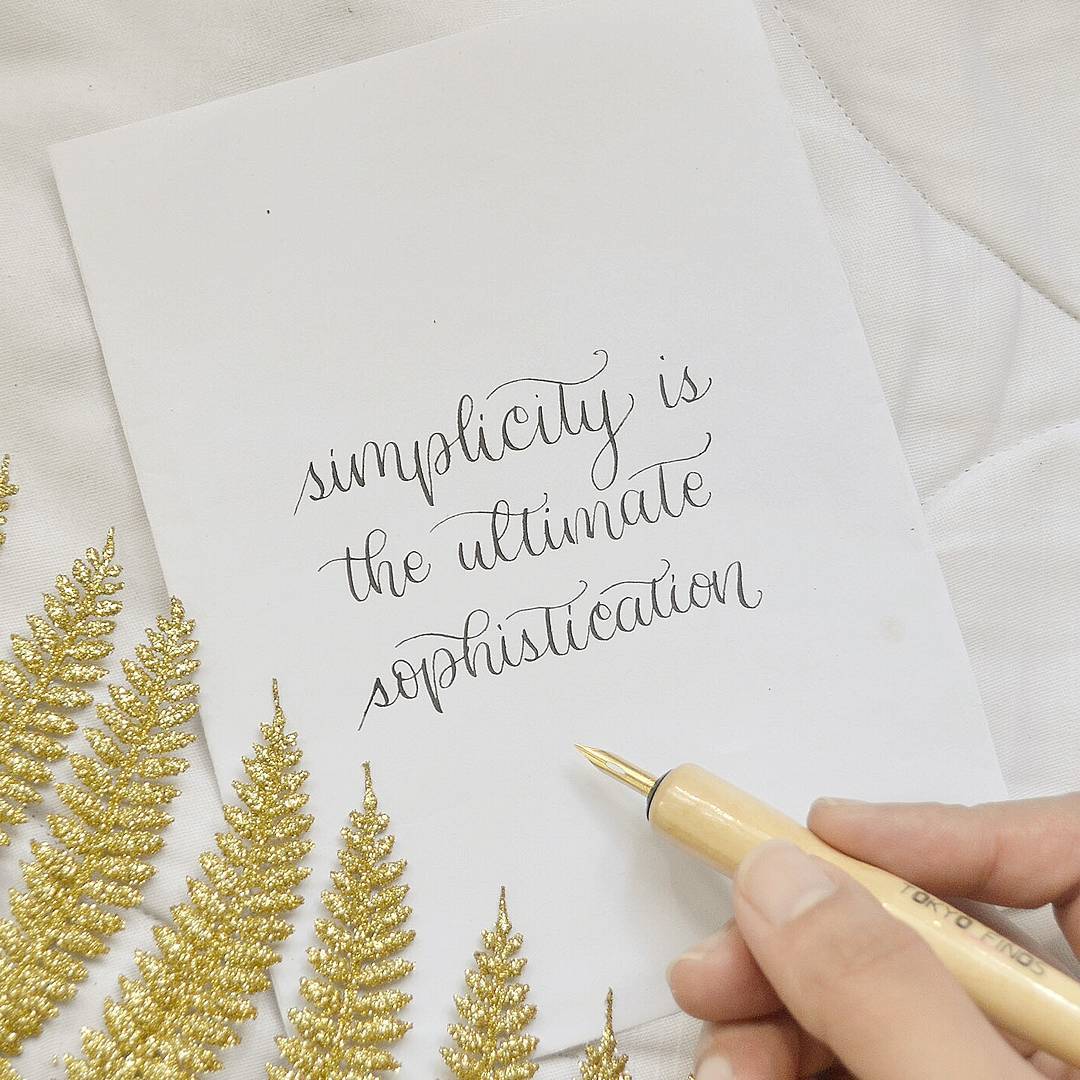 simplicity is
the ultimate
sophistication
TOKYO FINDS